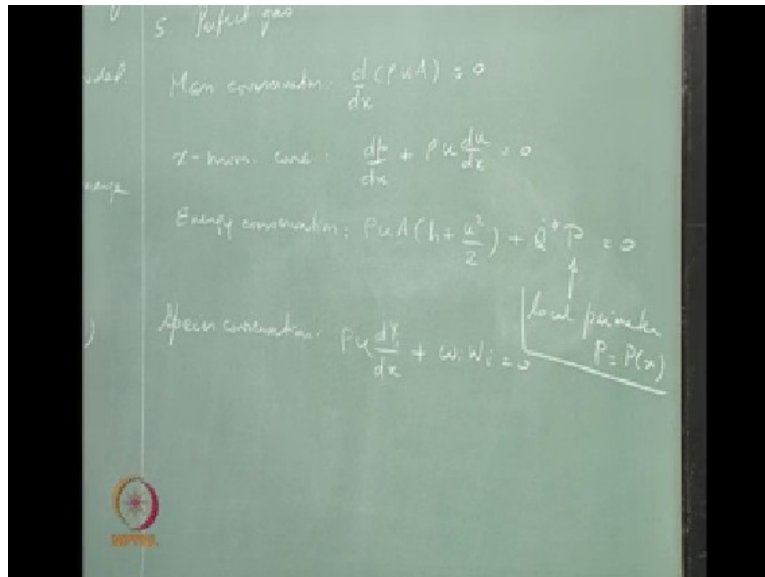 5 Perfect gas
Mass conservation: d/dx (ρuA) = 0
x-mom. cons: dp/dx + ρu du/dx = 0
Energy conservation: ρuA(h + u²/2) + Q̇" P = 0
local perimeter
P = P(x)
) Species conservation: ρu dYi/dx + ωi Wi = 0